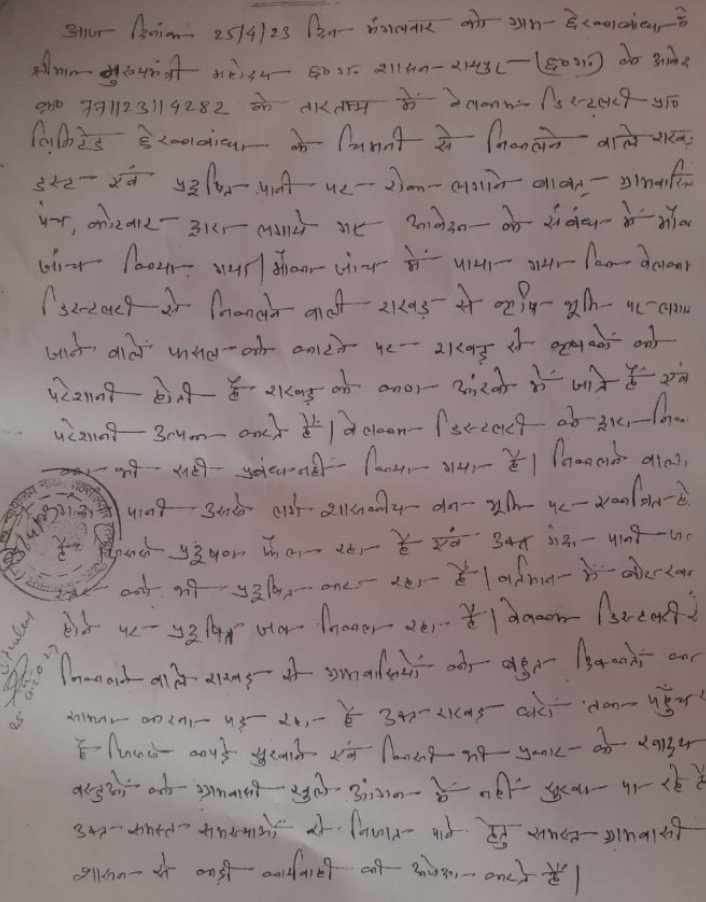 आज दिनांक 25/4/23 दिन मंगलवार को ग्राम छेरकाबांधा के
श्रीमान मुख्यमंत्री महोदय छ०ग० शासन रायपुर (छ०ग०) के आवेद
क्र० 771123114282 के तारतम्य में वेलकम डिस्टलरी प्रा०
लिमिटेड छेरकाबांधा के चिमनी से निकलने वाले राखड़
डस्ट एवं प्रदूषित पानी पर रोक लगाने बाबत ग्रामवासि
पंच, कोटवार द्वारा लगाये गए आवेदन के संबंध में मौका
जांच किया गया। मौका जांच में पाया गया कि वेलकम
डिस्टलरी से निकलने वाली राखड़ से कृषि भूमि पर लगाए
जाने वाले फसल को काटने पर राखड़ से कृषकों को
परेशानी होती है राखड़ के कण आंखो में जाते हैं एवं
परेशानी उत्पन्न करते हैं। वेलकम डिस्टलरी के द्वारा
का भी सही प्रबंध नहीं किया गया है। निकलने वाला
गंदा पानी उसके लगे शासकीय वन भूमि पर एकत्रित हो
है जिससे प्रदूषण फैल रहा है एवं उक्त गंदा पानी जल
को भी प्रदूषित कर रहा है। वर्तमान में बोर खनन
होने पर प्रदूषित जल निकल रहा है। वेलकम डिस्टलरी से
निकलने वाले राखड़ से ग्रामवासियों को बहुत दिक्कतों का
सामना करना पड़ रहा है उक्त राखड़ घरों तक पहुँच र
है जिससे कपड़े सुखाने एवं किसी भी प्रकार के खाद्य
वस्तुओं को ग्रामवासी खुले आंगन में नहीं सुखा पा रहे हैं
उक्त समस्त समस्याओं से निजात पाने हेतु समस्त ग्रामवासी
शासन से कड़ी कार्यवाही की अपेक्षा करते हैं।